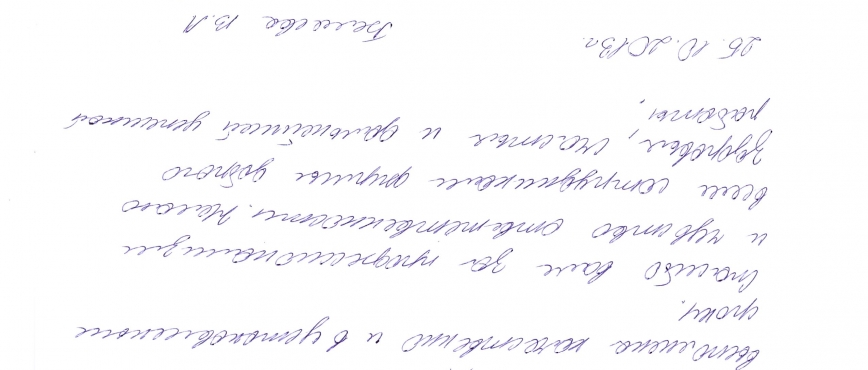 выполнена качественно и в установленные
сроки.
Спасибо вам за профессионализм
и чувство ответственности. Желаю
всем сотрудникам фирмы доброго
здоровья, счастья и дальнейшей успешной
работы.
25.10.2013г. В.Л